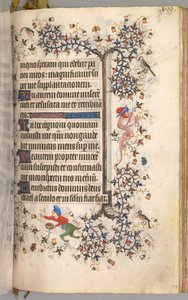 in quo speraui qui edebat pa
nes meos: magnificauit su
per me supplantationem
Tu autem domine misere
re mei et resuscita me et retribuam
eis
In hoc cognoui quoniam
uoluisti me quoniam non gaude
bit inimicus meus super me
Me autem propter innocen
tiam suscepisti et confirmas
ti me in conspectu tuo in eternum
Benedictus dominus deus
israel a seculo et in seculum fiat fiat